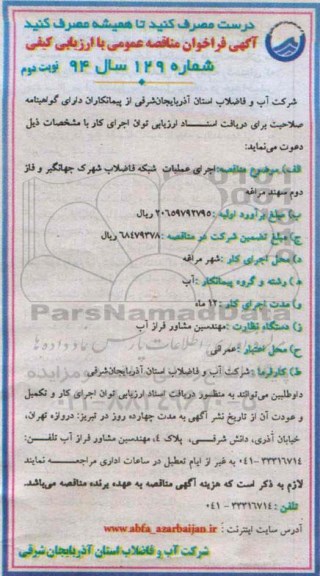 درست مصرف کنید تا همیشه مصرف کنید
آگهی فراخوان مناقصه عمومی با ارزیابی کیفی
شماره ۱۲۹ سال ۹۴ نوبت دوم
شرکت آب و فاضلاب استان آذربایجان‌شرقی از پیمانکاران دارای گواهینامه
صلاحیت برای دریافت اسناد ارزیابی توان اجرای کار با مشخصات ذیل
دعوت می‌نماید:
الف) موضوع مناقصه: اجرای عملیات شبکه فاضلاب شهرک جهانگیر و فاز
دوم سهند مراغه
ب) مبلغ برآورد اولیه: ۲۰۶۵۹۷۹۲۷۹۵ ریال
ج) مبلغ تضمین شرکت در مناقصه: ۶۸۴۷۹۳۷۸ ریال
د) محل اجرای کار: شهر مراغه
ه) رشته و گروه پیمانکار: آب
و) مدت اجرای کار: ۱۲ ماه
ز) دستگاه نظارت: مهندسین مشاور فراز آب
ح) محل اعتبار: عمرانی
ط) کارفرما: شرکت آب و فاضلاب استان آذربایجان‌شرقی
داوطلبین می‌توانند به منظور دریافت اسناد ارزیابی توان اجرای کار و تکمیل
و عودت آن از تاریخ نشر آگهی به مدت چهارده روز در تبریز: دروازه تهران،
خیابان آذری، دانش شرقی، پلاک ۴، مهندسین مشاور فراز آب تلفن:
۳۳۳۱۶۷۱۴-۰۴۱ به غیر از ایام تعطیل در ساعات اداری مراجعه نمایند
لازم به ذکر است که هزینه آگهی مناقصه به عهده برنده مناقصه می‌باشد.
تلفن: ۳۳۳۱۶۷۱۴ - ۰۴۱
آدرس سایت اینترنت: www.abfa_azarbaijan.ir
شرکت آب و فاضلاب استان آذربایجان شرقی
ParsNamadData